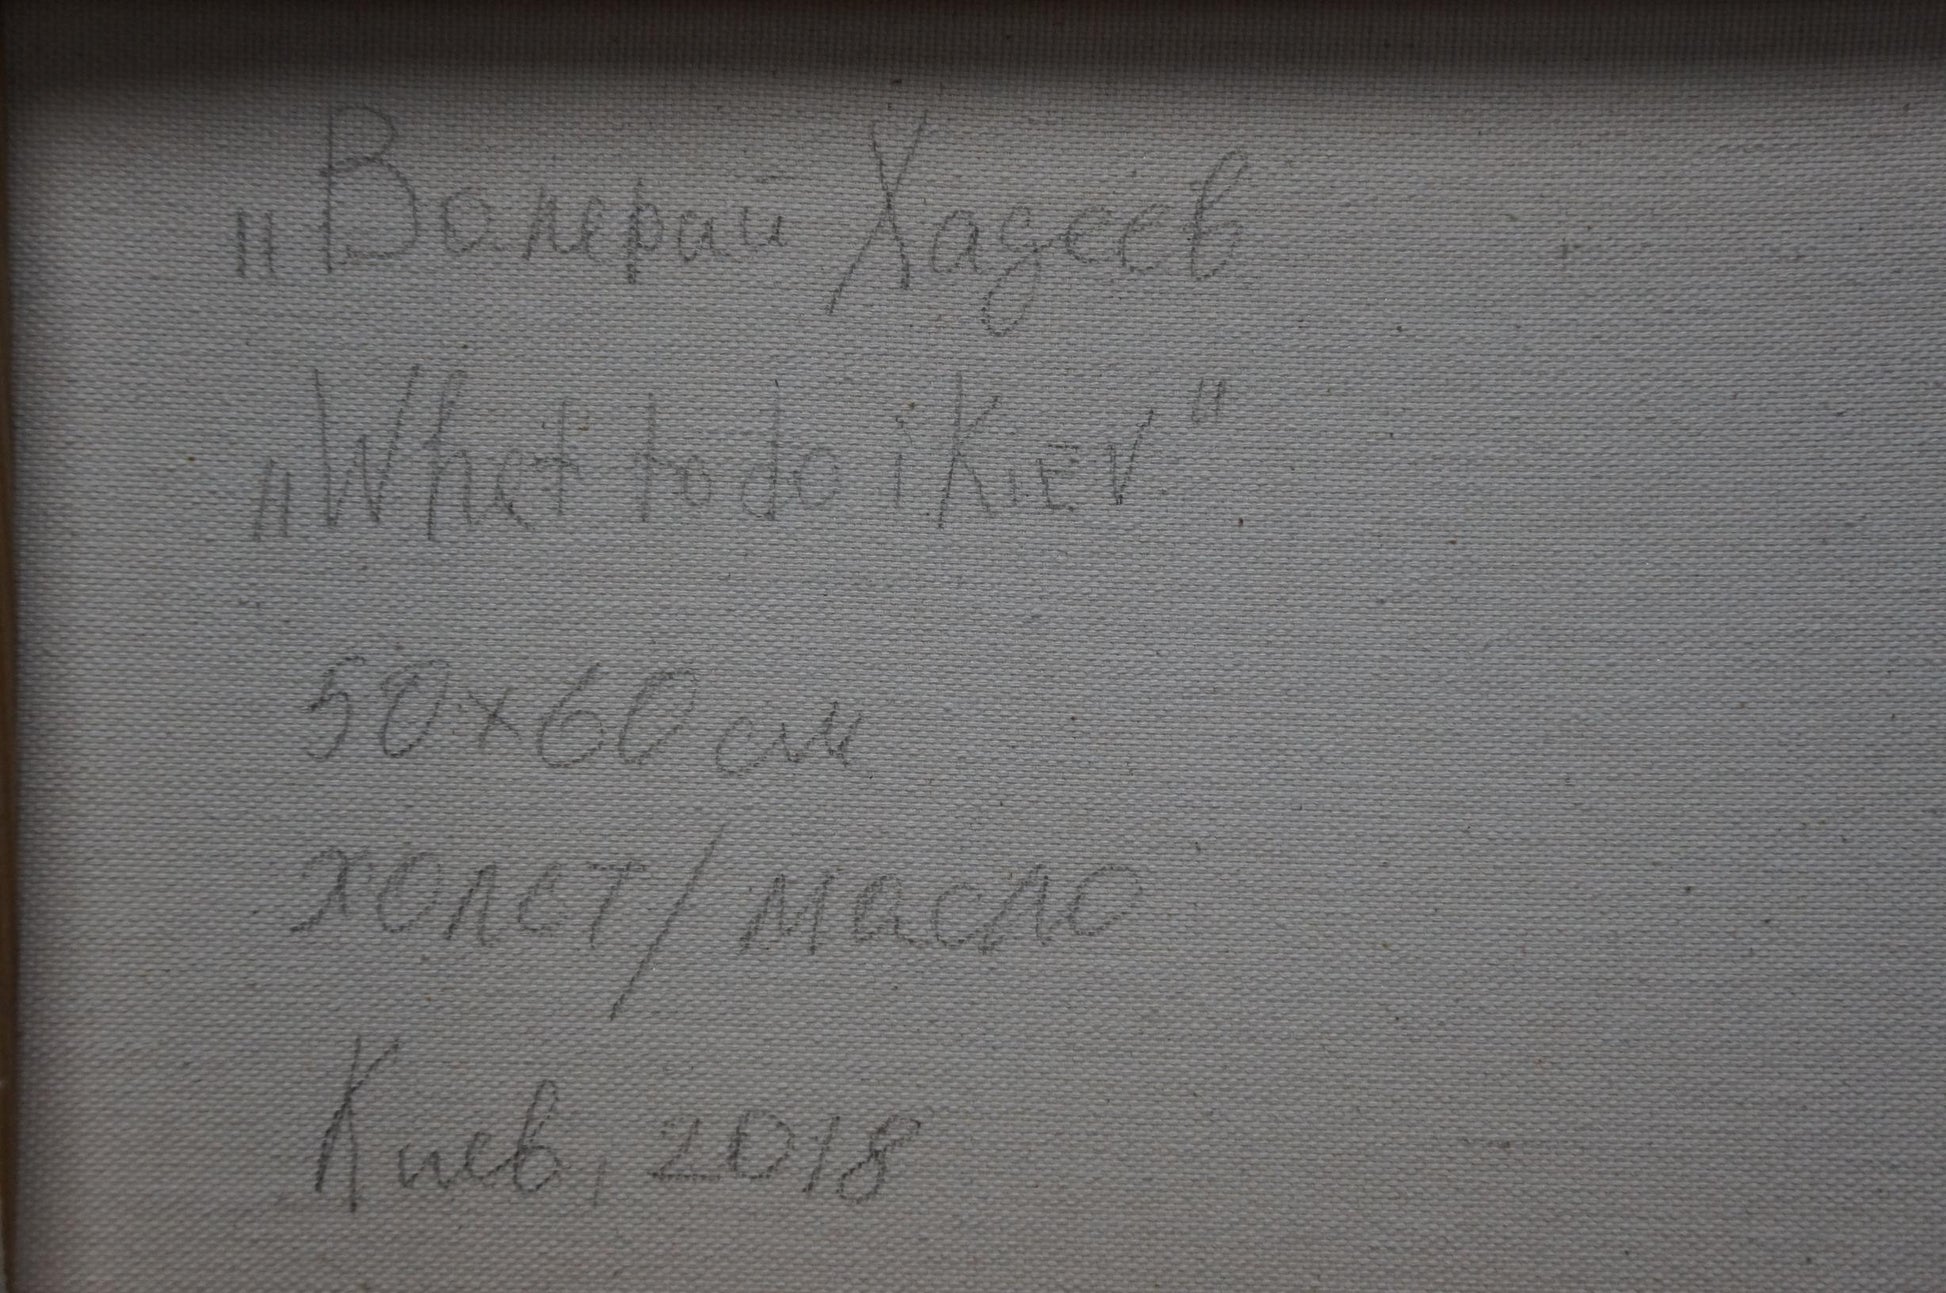 „Валерий Хадеев
„What to do i Kiev"
50x60 см
холст/масло
Киев, 2018